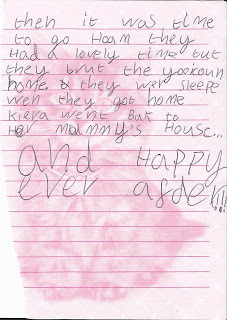 then it was time
to go Hoam they
Had a lovely time but
they brut the yooicoun
home. & they wer sleepe
wen they got home
kiera went Bak to
Her mummy's House...
and Happy
ever afder!!!!